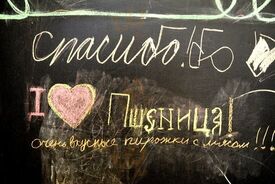 Спасибо!
I ♥ Пшsница!
очень вкусные пирожки с мясом!!!